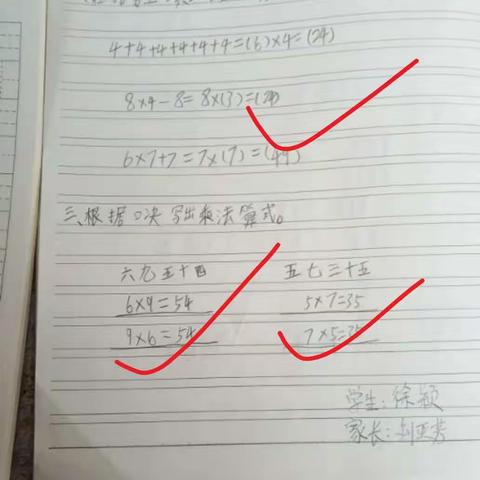 4+4+4+4+4+4=(6)×4=(24)
8×4-8=8×(3)=(24)
6×7+7=7×(7)=(49)
三、根据口决写出乘法算式。
六九五十四 五七三十五
6×9=54 5×7=35
9×6=54 7×5=35
学生:徐颖
家长:刘